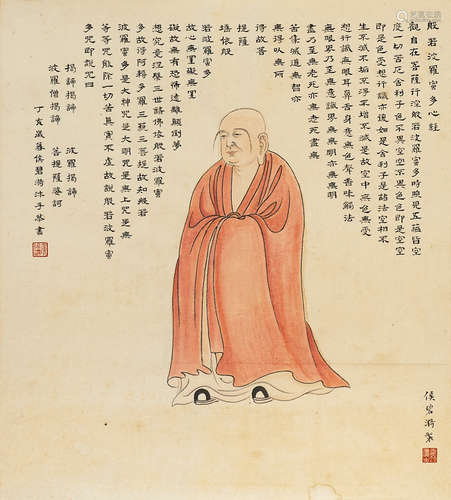 般若波羅蜜多心經
觀自在菩薩行深般若波羅蜜多時照見五蘊皆空
度一切苦厄舍利子色不異空空不異色色即是空空
即是色受想行識亦復如是舍利子是諸法空相不
生不滅不垢不淨不增不減是故空中無色無受
想行識無眼耳鼻舌身意無色聲香味觸法
無眼界乃至無意識界無無明亦無無明
盡乃至無老死亦無老死盡無
苦集滅道無智亦
無得以無所
得故菩
提薩
埵依般
若波羅蜜多
故心無罣礙無罣
礙故無有恐怖遠離顛倒夢
想究竟涅槃三世諸佛依般若波羅蜜
多故得阿耨多羅三藐三菩提故知般若
波羅蜜多是大神咒是大明咒是無上咒是無
等等咒能除一切苦真實不虛故說般若波羅蜜
多咒即說咒曰
揭諦揭諦 波羅揭諦
波羅僧揭諦 菩提薩婆訶
丁亥歲暮侯碧漪沐手恭書
侯碧漪製